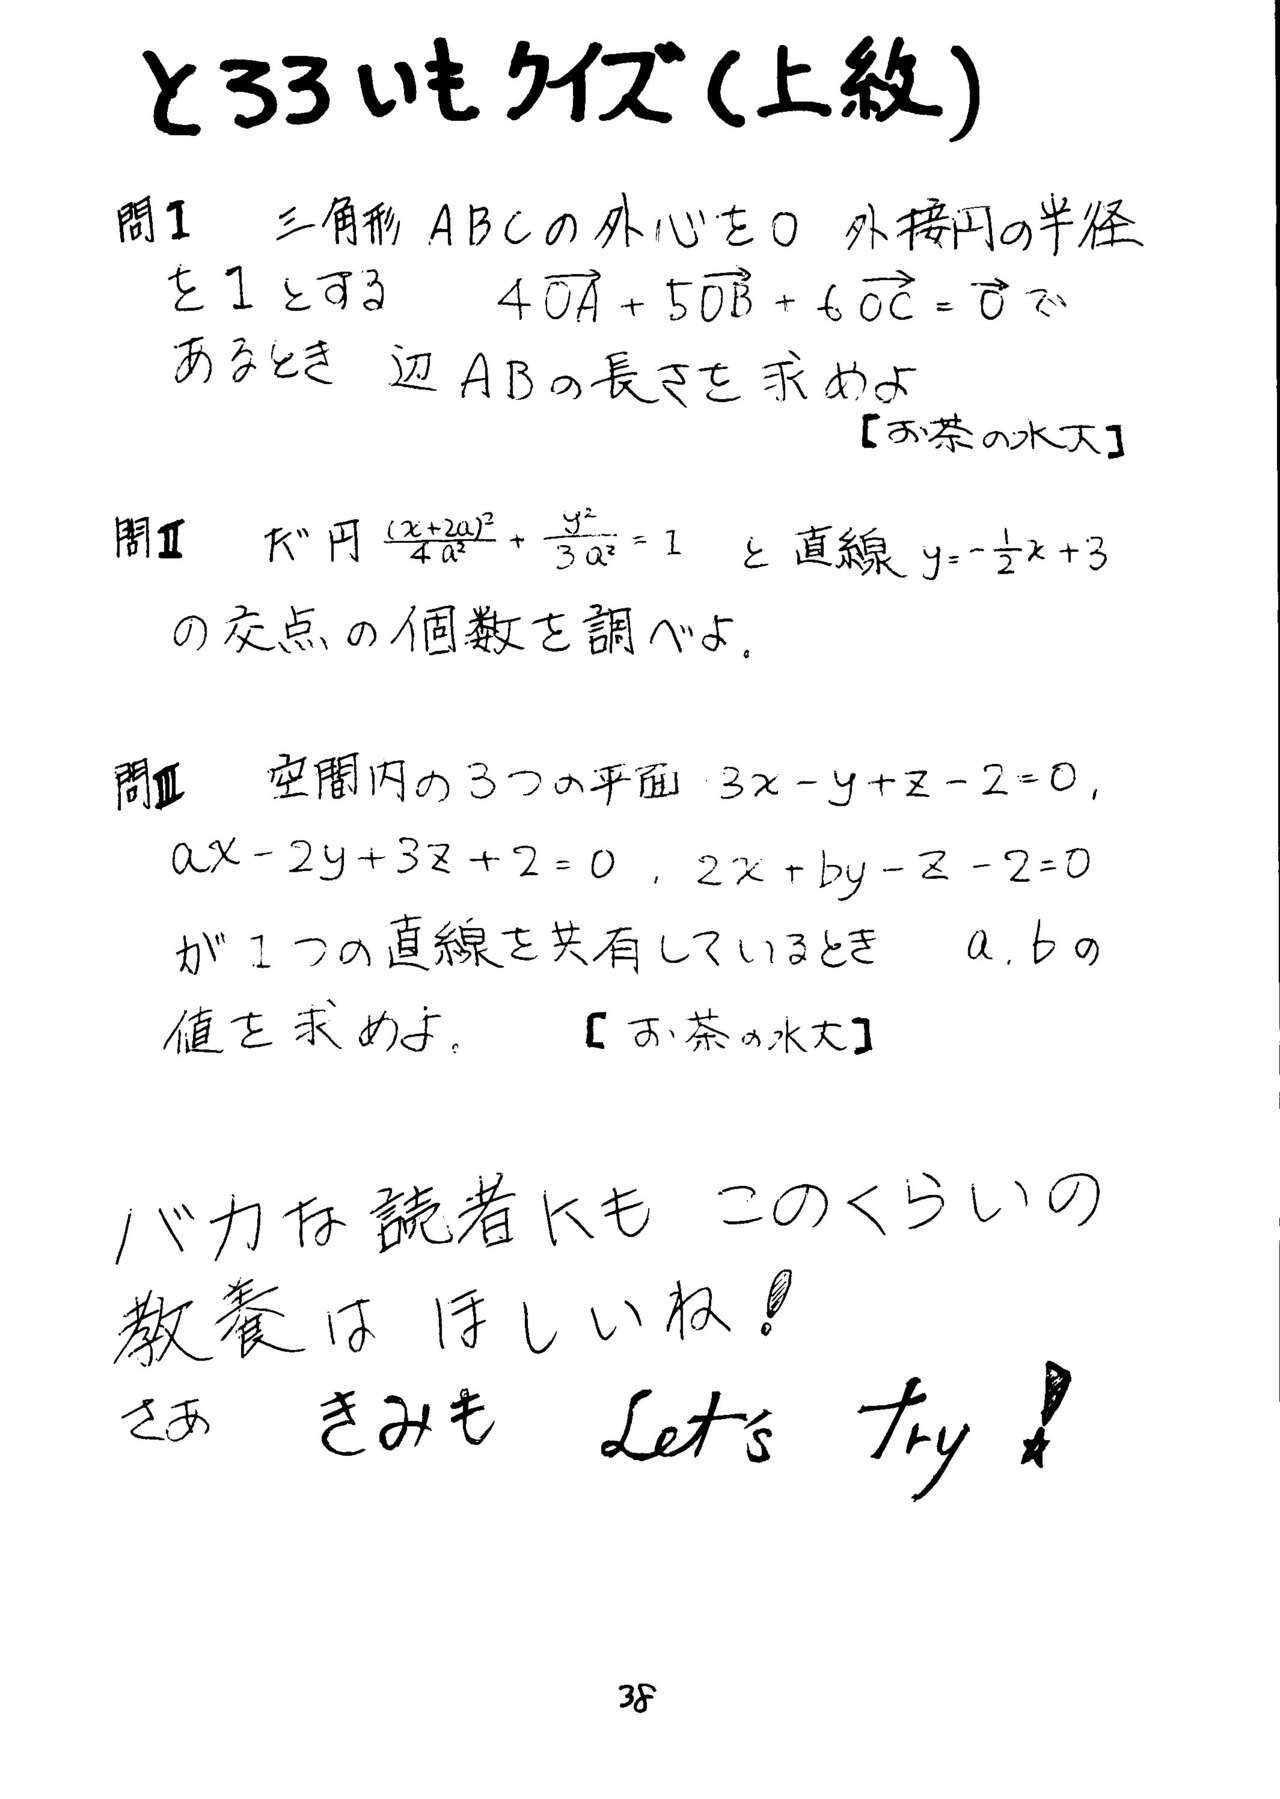 とろろいもクイズ(上紋)
問I 三角形ABCの外心をO 外接円の半径
を1とする 4OA→ + 5OB→ + 6OC→ = 0→で
あるとき 辺ABの長さを求めよ
[お茶の水大]
問II だ円 (x+2a)²/4a² + y²/3a² = 1 と直線 y=-1/2x+3
の交点の個数を調べよ.
問III 空間内の3つの平面 3x-y+z-2=0,
ax-2y+3z+2=0, 2x+by-z-2=0
が1つの直線を共有しているとき a,bの
値を求めよ. [お茶の水大]
バカな読者にも このくらいの
教養は ほしいね!
さあ きみも Let's Try!
38